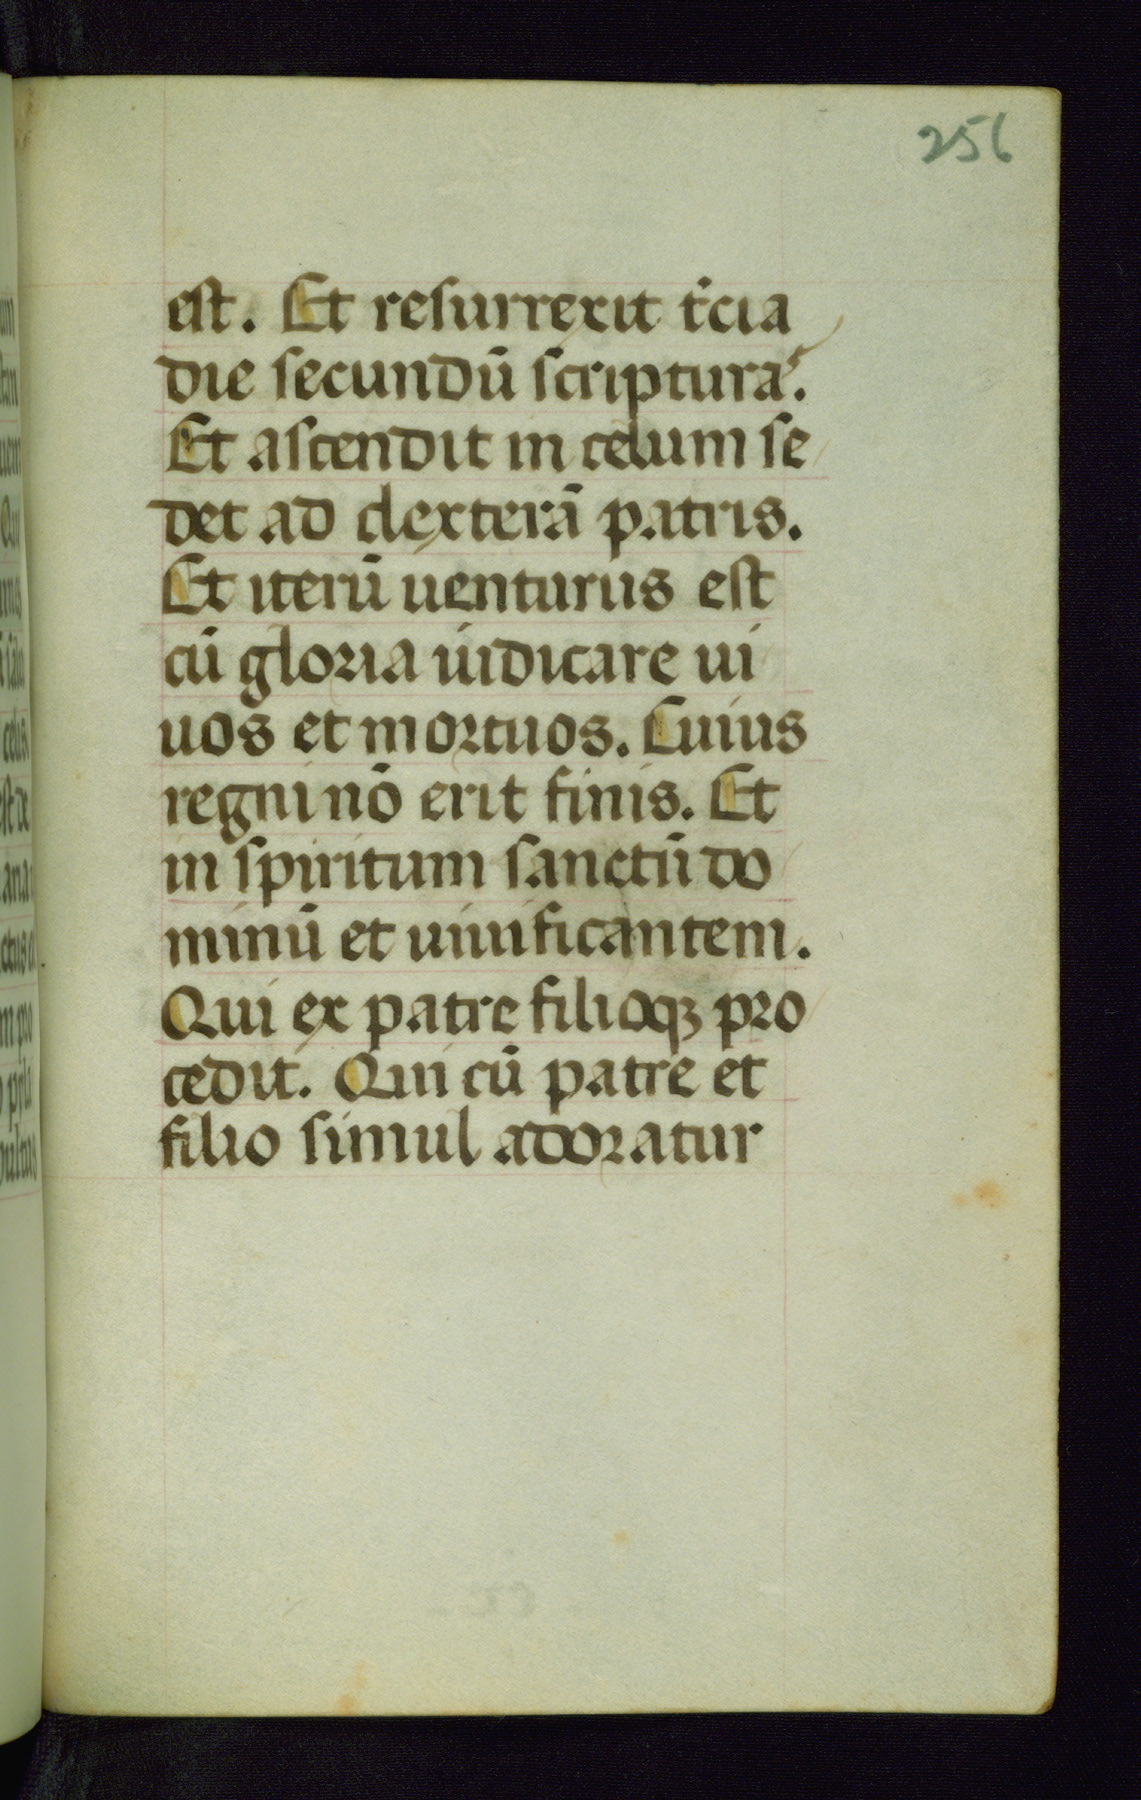 256
est. Et resurrexit t̉cia
die secundū scripturaˢ.
Et ascendit in celum se
det ad dexterā patris.
Et iterū uenturus est
cū gloria iudicare ui
uos et mortuos. Cuius
regni nō erit finis. Et
in spiritum sanctū do
minū et uiuificantem.
Qui ex patre filioqꝫ pro
cedit. Qui cū patre et
filio simul adoratur